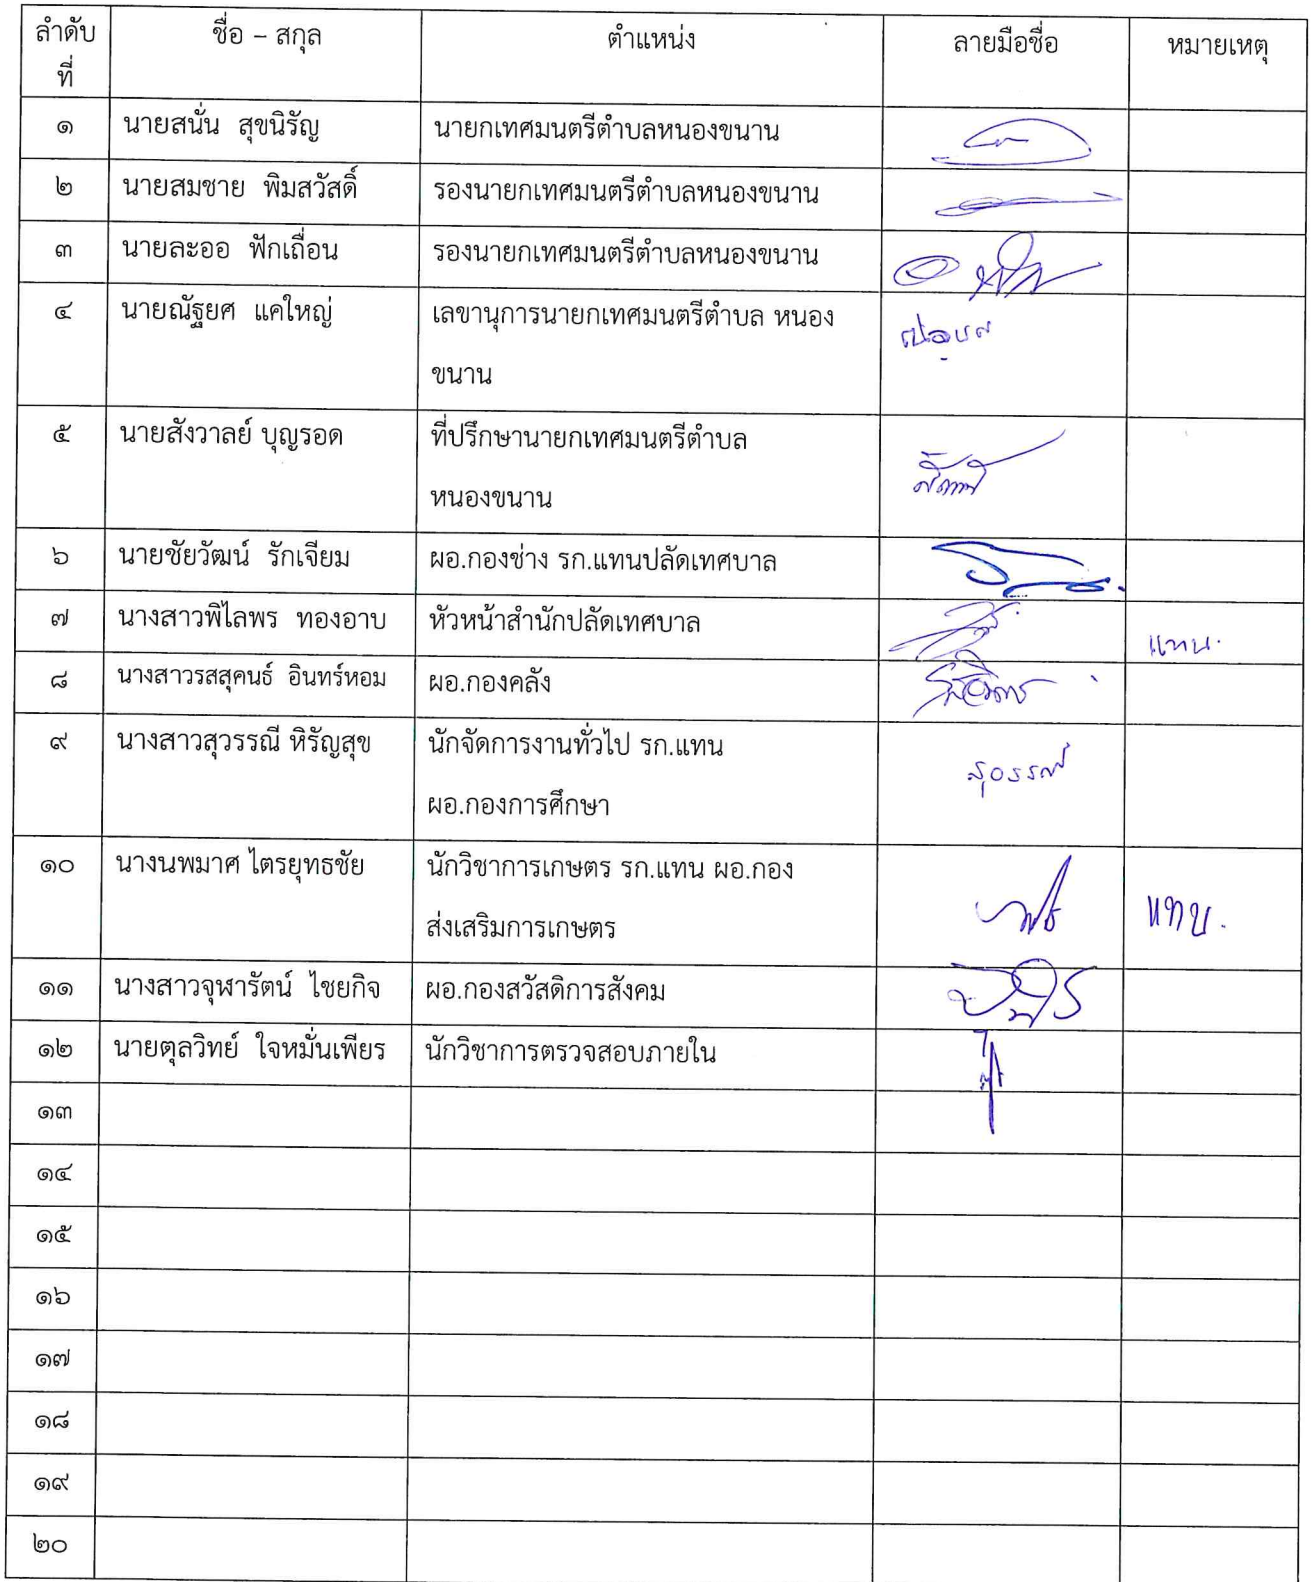 ลำดับ ชื่อ – สกุล ตำแหน่ง ลายมือชื่อ หมายเหตุ
ที่
๑ นายสนั่น สุขนิรัญ นายกเทศมนตรีตำบลหนองขนาน
๒ นายสมชาย พิมสวัสดิ์ รองนายกเทศมนตรีตำบลหนองขนาน
๓ นายละออ ฟักเถื่อน รองนายกเทศมนตรีตำบลหนองขนาน
๔ นายณัฐยศ แคใหญ่ เลขานุการนายกเทศมนตรีตำบล หนอง
ขนาน
๕ นายสังวาลย์ บุญรอด ที่ปรึกษานายกเทศมนตรีตำบล
หนองขนาน
๖ นายชัยวัฒน์ รักเจียม ผอ.กองช่าง รก.แทนปลัดเทศบาล
๗ นางสาวพิไลพร ทองอาบ หัวหน้าสำนักปลัดเทศบาล แทน.
๘ นางสาวรสสุคนธ์ อินทร์หอม ผอ.กองคลัง
๙ นางสาวสุวรรณี หิรัญสุข นักจัดการงานทั่วไป รก.แทน สุวรรณี
ผอ.กองการศึกษา
๑๐ นางนพมาศ ไตรยุทธชัย นักวิชาการเกษตร รก.แทน ผอ.กอง แทน.
ส่งเสริมการเกษตร
๑๑ นางสาวจุฬารัตน์ ไชยกิจ ผอ.กองสวัสดิการสังคม
๑๒ นายตุลวิทย์ ใจหมั่นเพียร นักวิชาการตรวจสอบภายใน
๑๓
๑๔
๑๕
๑๖
๑๗
๑๘
๑๙
๒๐